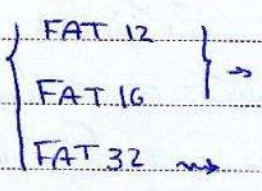 FAT 12
FAT 16
FAT 32